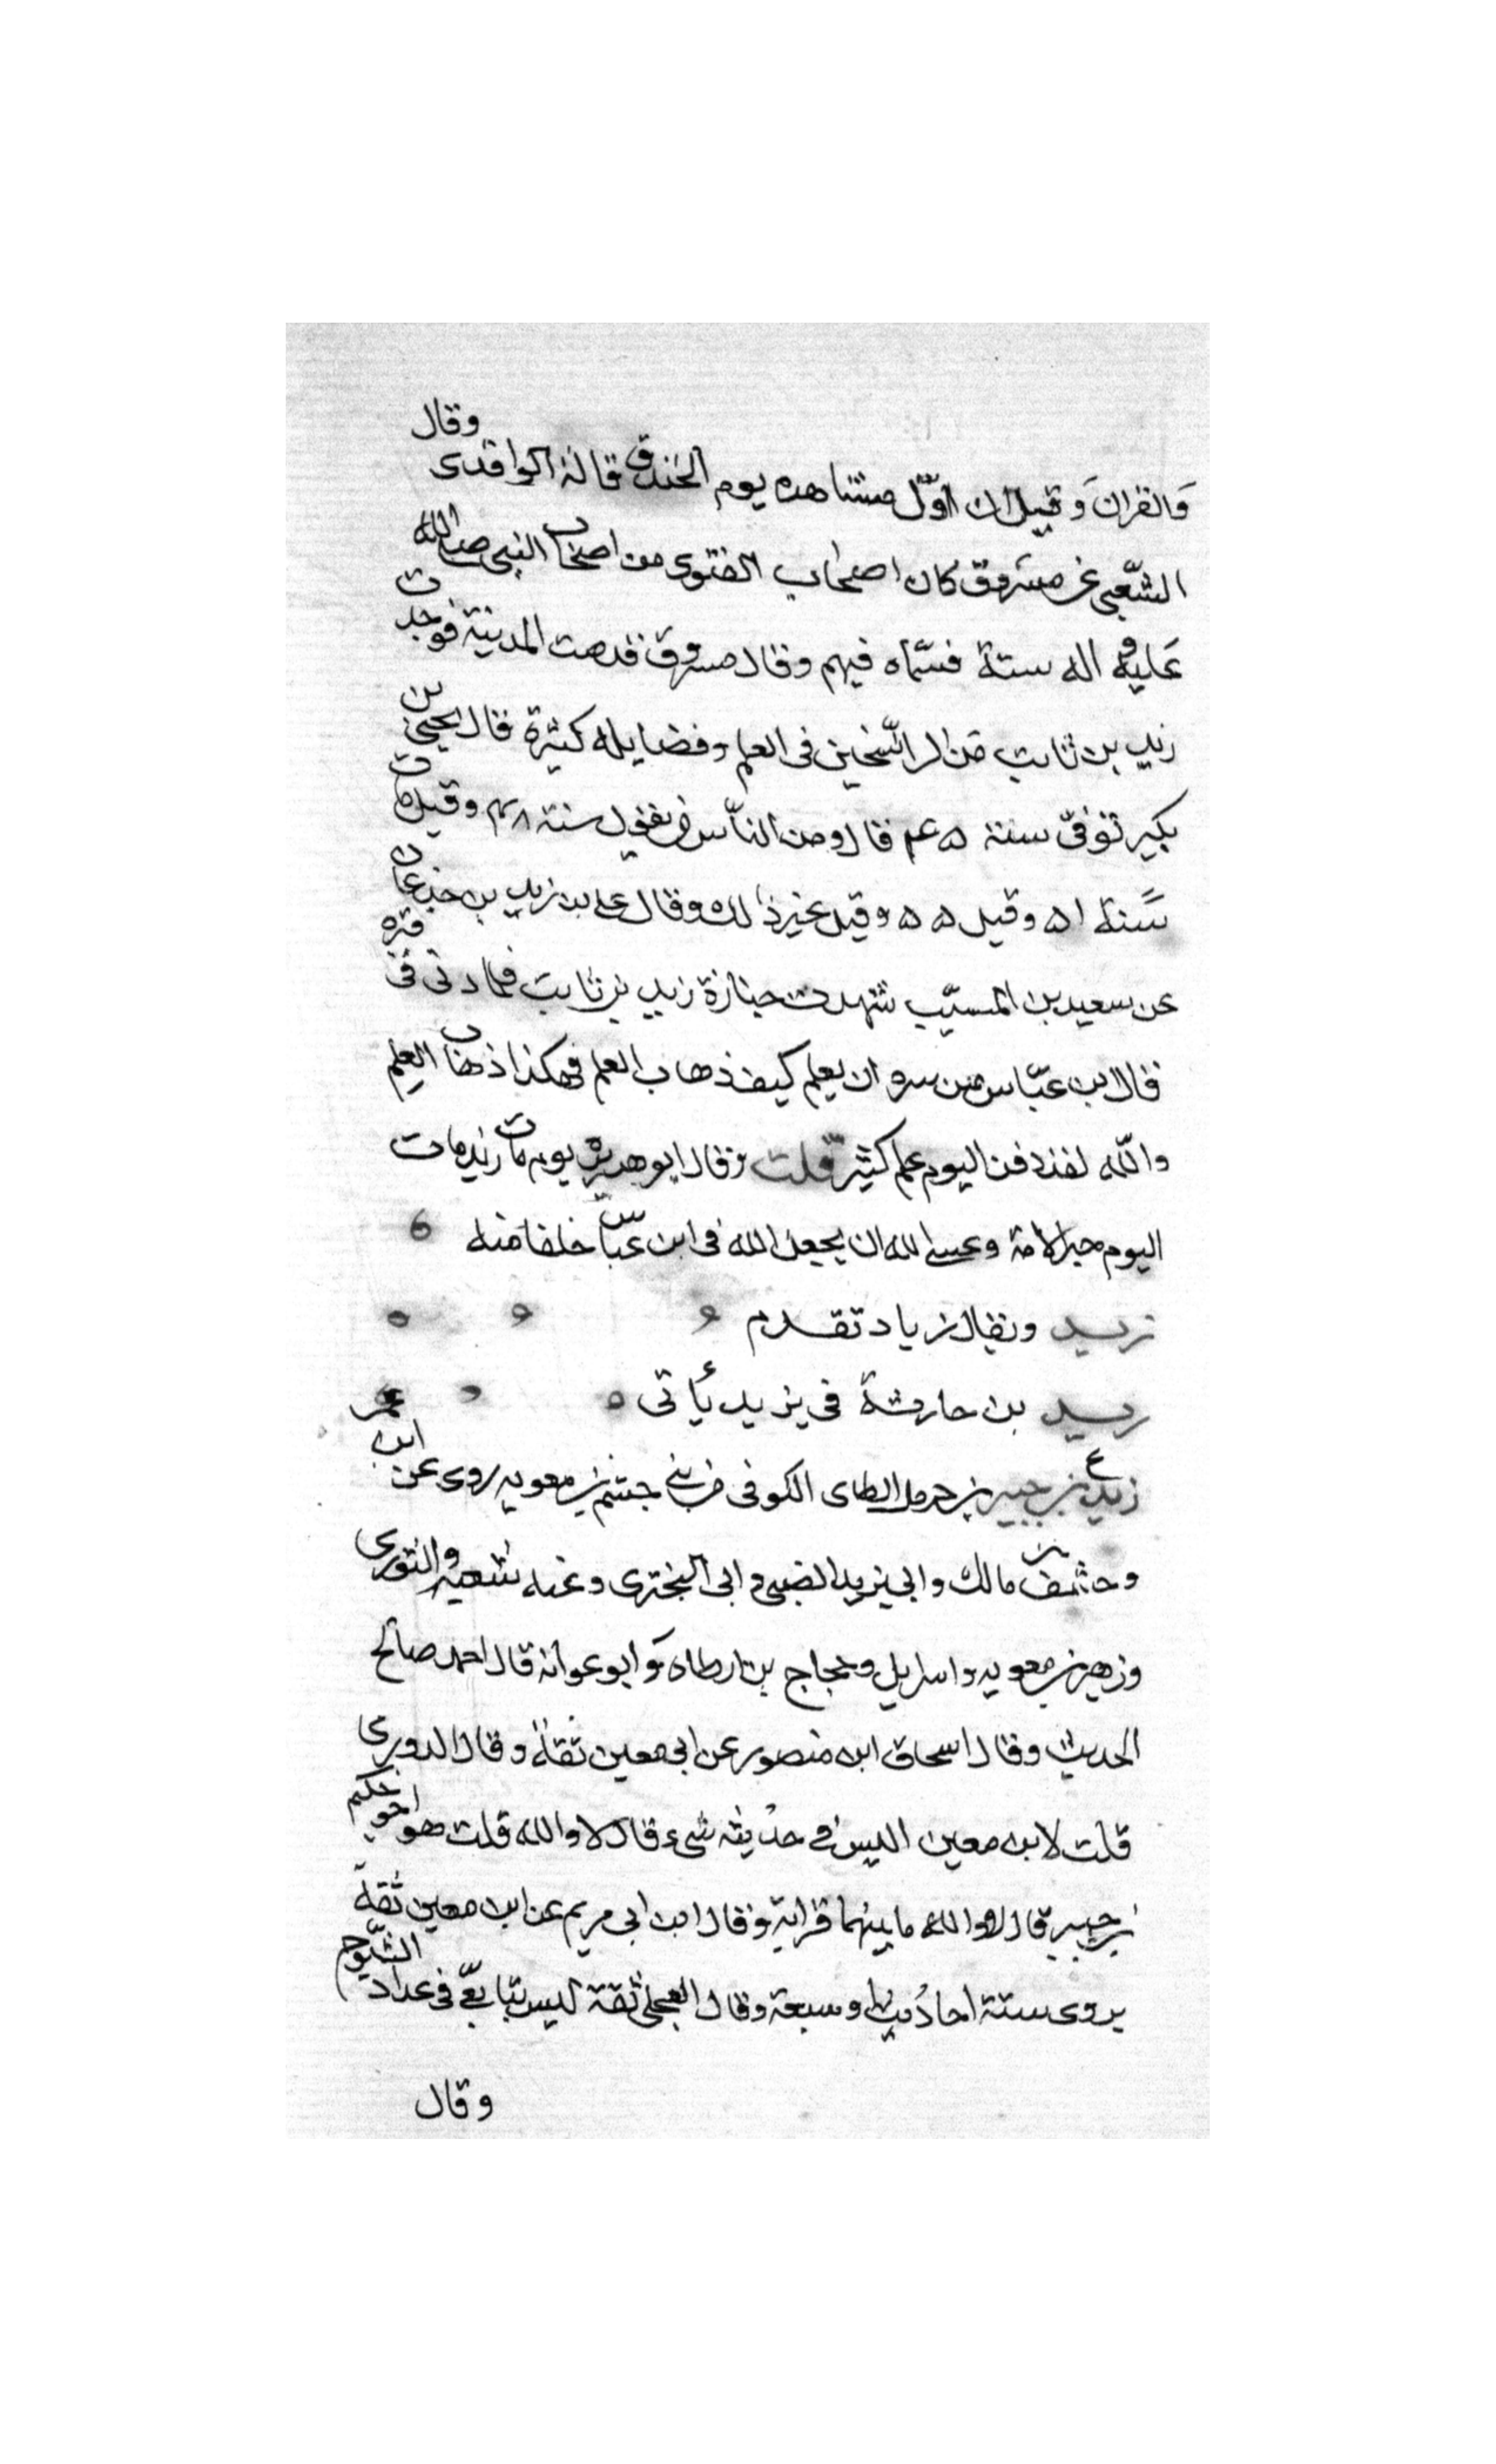 والقران وقيل ان اوّل مشاهده يوم الخندق قاله الواقدى وقال
الشعبي عن مسروق كان اصحاب الفتوى من اصحاب النبى صلى الله
عليه و اله ستة فسماه فيهم وقال مسروق قدمت المدينة فوجدت
زيد بن ثابت من الراسخين فى العلم وفضايله كثيرة قال يحيى بن
بكير توفى سنة ٤٥ قال ومن الناس من يقول سنة ٤٨ وقيل مات
سنة ٥١ وقيل ٥٥ وقيل غير ذلك وقال على بن زيد بن جدعان
عن سعيد بن المسيّب شهدت جنازة زيد بن ثابت فلما دلى فى قبره
قال ابن عبّاس من سره ان يعلم كيف ذهاب العلم فهكذا ذهاب العلم
والله لقد دفن اليوم علم كثير قلت وقال ابو هريرة يوم مات زيد مات
اليوم حبر الامة وعسى الله ان يجعل الله فى ابن عبّاس خلفا منه
زيد ويقال زياد تقدم
زيد بن حارثة فى يزيد يأتى
ع زيد بن جبير بن حرمل الطاى الكوفى من بني جشم بن معويه روى عن ابن عمر
وخشف بن مالك وابي يزيد الضبى و ابى البخترى وعنه شعبه والثورى
وزهير بن معويه واسرايل وحجاج بن ارطاه و ابو عوانه قال احمد صالح
الحديث وقال اسحاق ابن منصور عن ابى معين ثقة وقال الدورى
قلت لابن معين اليس فى حديثه شىء قال لا والله قلت هو اخو حكيم
بن جبير قال لا والله ما بينهما قرابة وقال ابن ابى مريم عن ابن معين ثقة
يروى ستة احاديث او سبعة وقال العجلى ثقة ليس بتابعىّ فى عداد الشيوخ
وقال